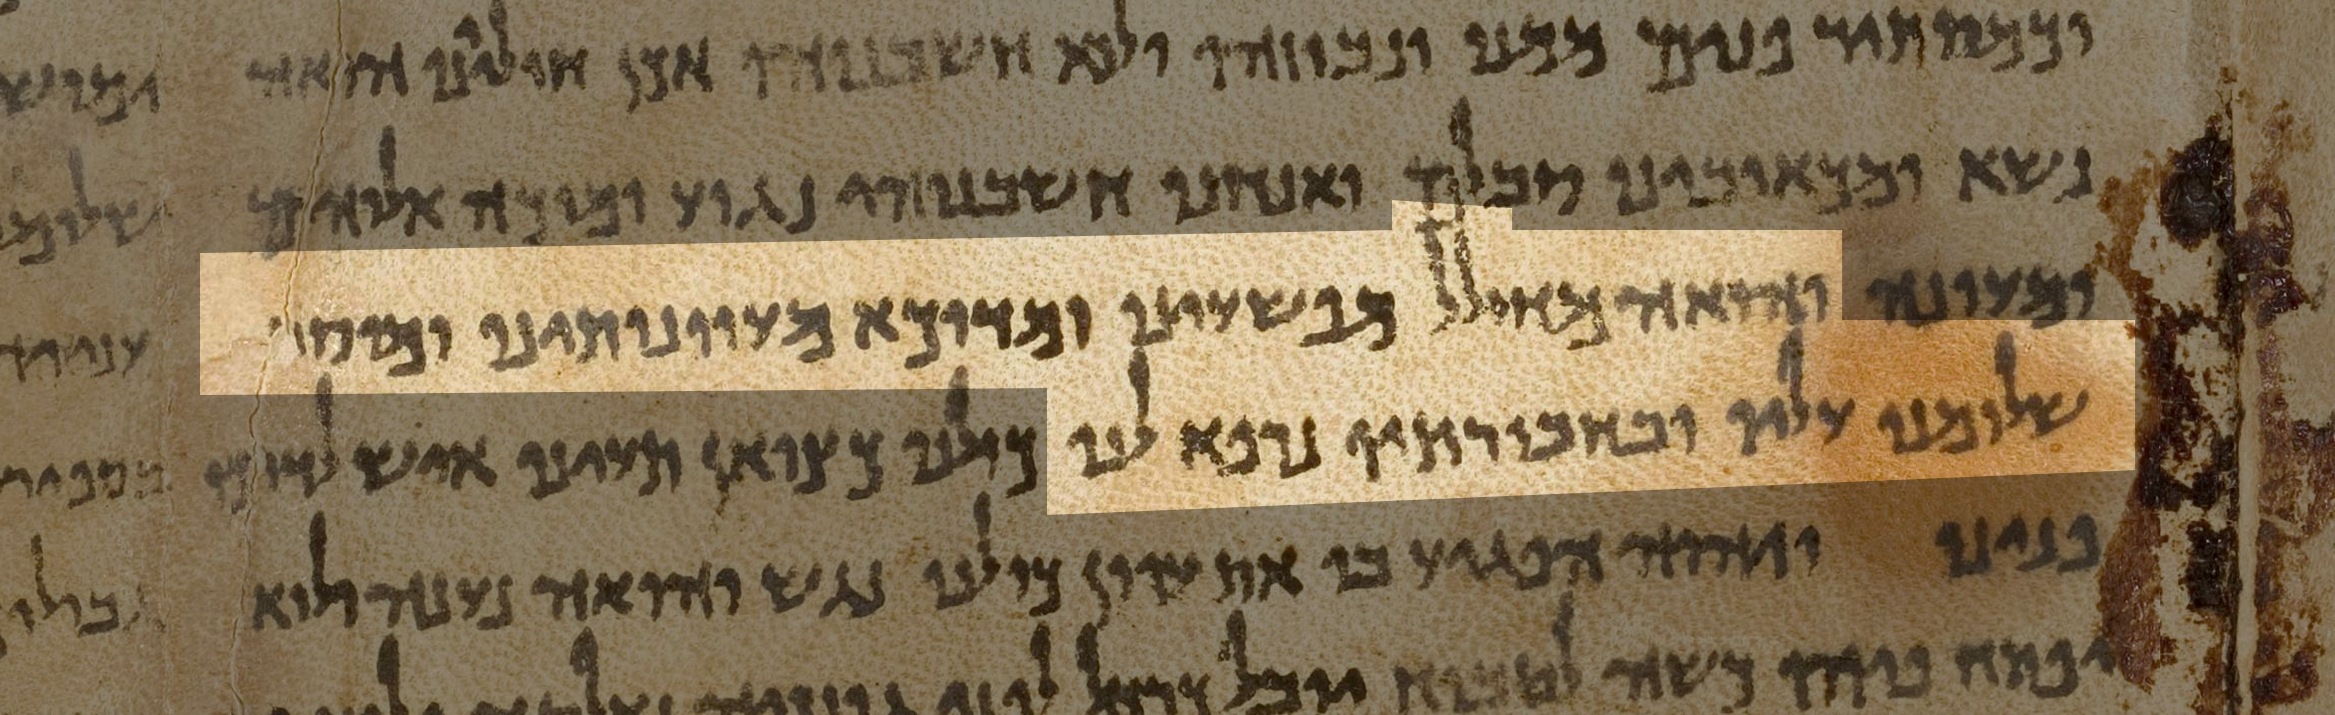 וכמסתיר פנים ממנו ונבוזהו ולוא חשבנוהו אכן חוליינו הואה
נשא ומכאובינו סבלם ואנחנו חשבנוהו נגוע ומוכה אלוהים
ומעונה והואה מחולל מפשעינו ומדוכא מעוונותינו ומוסר
שלומנו עליו ובחבורתיו נרפא לנו כולנו כצואן תעינו איש לדרכו
פנינו ויהוה הפגיע בו את עוון כולנו נגש והואה נענה ולוא
יפתח פיהו כשה לטבוח יובל כרחל לפני